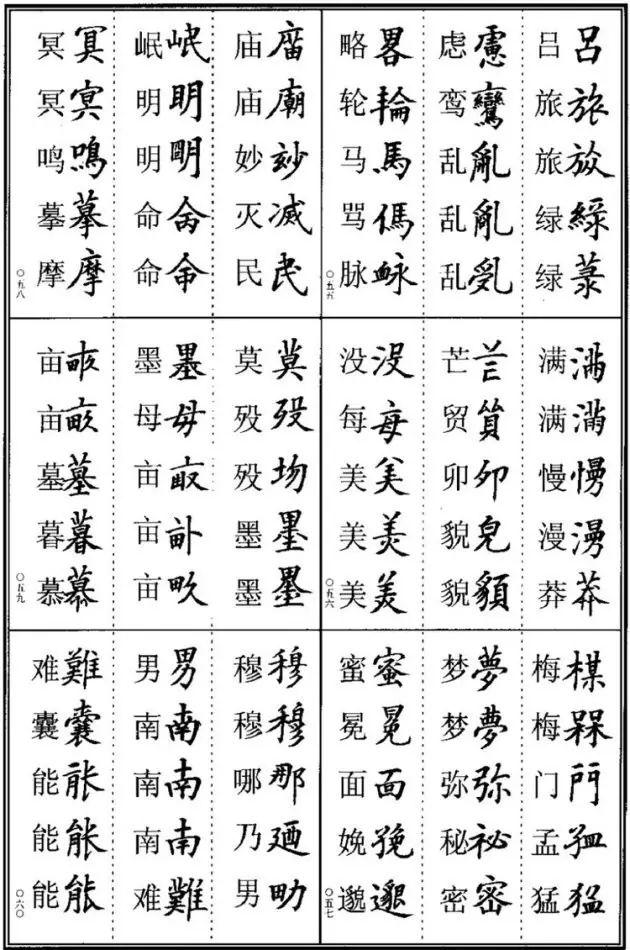 吕呂
旅旅
旅
绿綠
绿菉
虑慮
鸾鸞
乱亂
乱亂
乱
略畧
轮輪
马馬
骂傌
脉
〇五五
满
满
慢慢
漫漫
莽莽
芒芒
贸貿
卯夘
貌皃
貌
没没
每每
美美
美
美
〇五六
梅楳
梅槑
门門
孟
猛猛
梦夢
梦夢
弥弥
秘祕
密密
蜜蜜
冕冕
面面
娩
邈邈
〇五七
庙庿
庙廟
妙玅
灭滅
民民
岷岷
明明
明朙
命
命命
冥
冥
鸣鳴
摹摹
摩摩
〇五八
莫莫
殁殁
殁
墨墨
墨墨
墨墨
母母
亩
亩
亩
亩
亩
墓墓
暮暮
慕慕
〇五九
穆穆
穆穆
哪那
乃廼
男
男男
南南
南南
南南
难難
难難
囊囊
能
能
能能
〇六〇